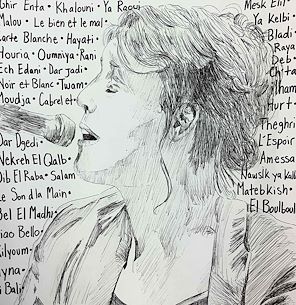 Ghir Enta • Khalouni • Ya Raoui
Malou • Le bien et le mal •
Carte Blanche • Hayati •
Houria • Oumniya • Rani
Ech Edani • Dar Jadi •
Noir et Blanc • Twam
Moudja • Cabrel et
Dar Dgedi •
Nekreh El Qalb •
Dib El Raba • Salam
Le Son d la Main •
Bel El Madhi •
Ciao Bello •
Kilyoum •
yna •
i Bali •
Mesk Elli
Ya Kelbi •
Bladi •
Raya
Deb •
Chita
Ilham
Hurt •
Theghri
L'Espoir
Amessa
Nauslk ya Kalb
Matebkish •
El Boulboul